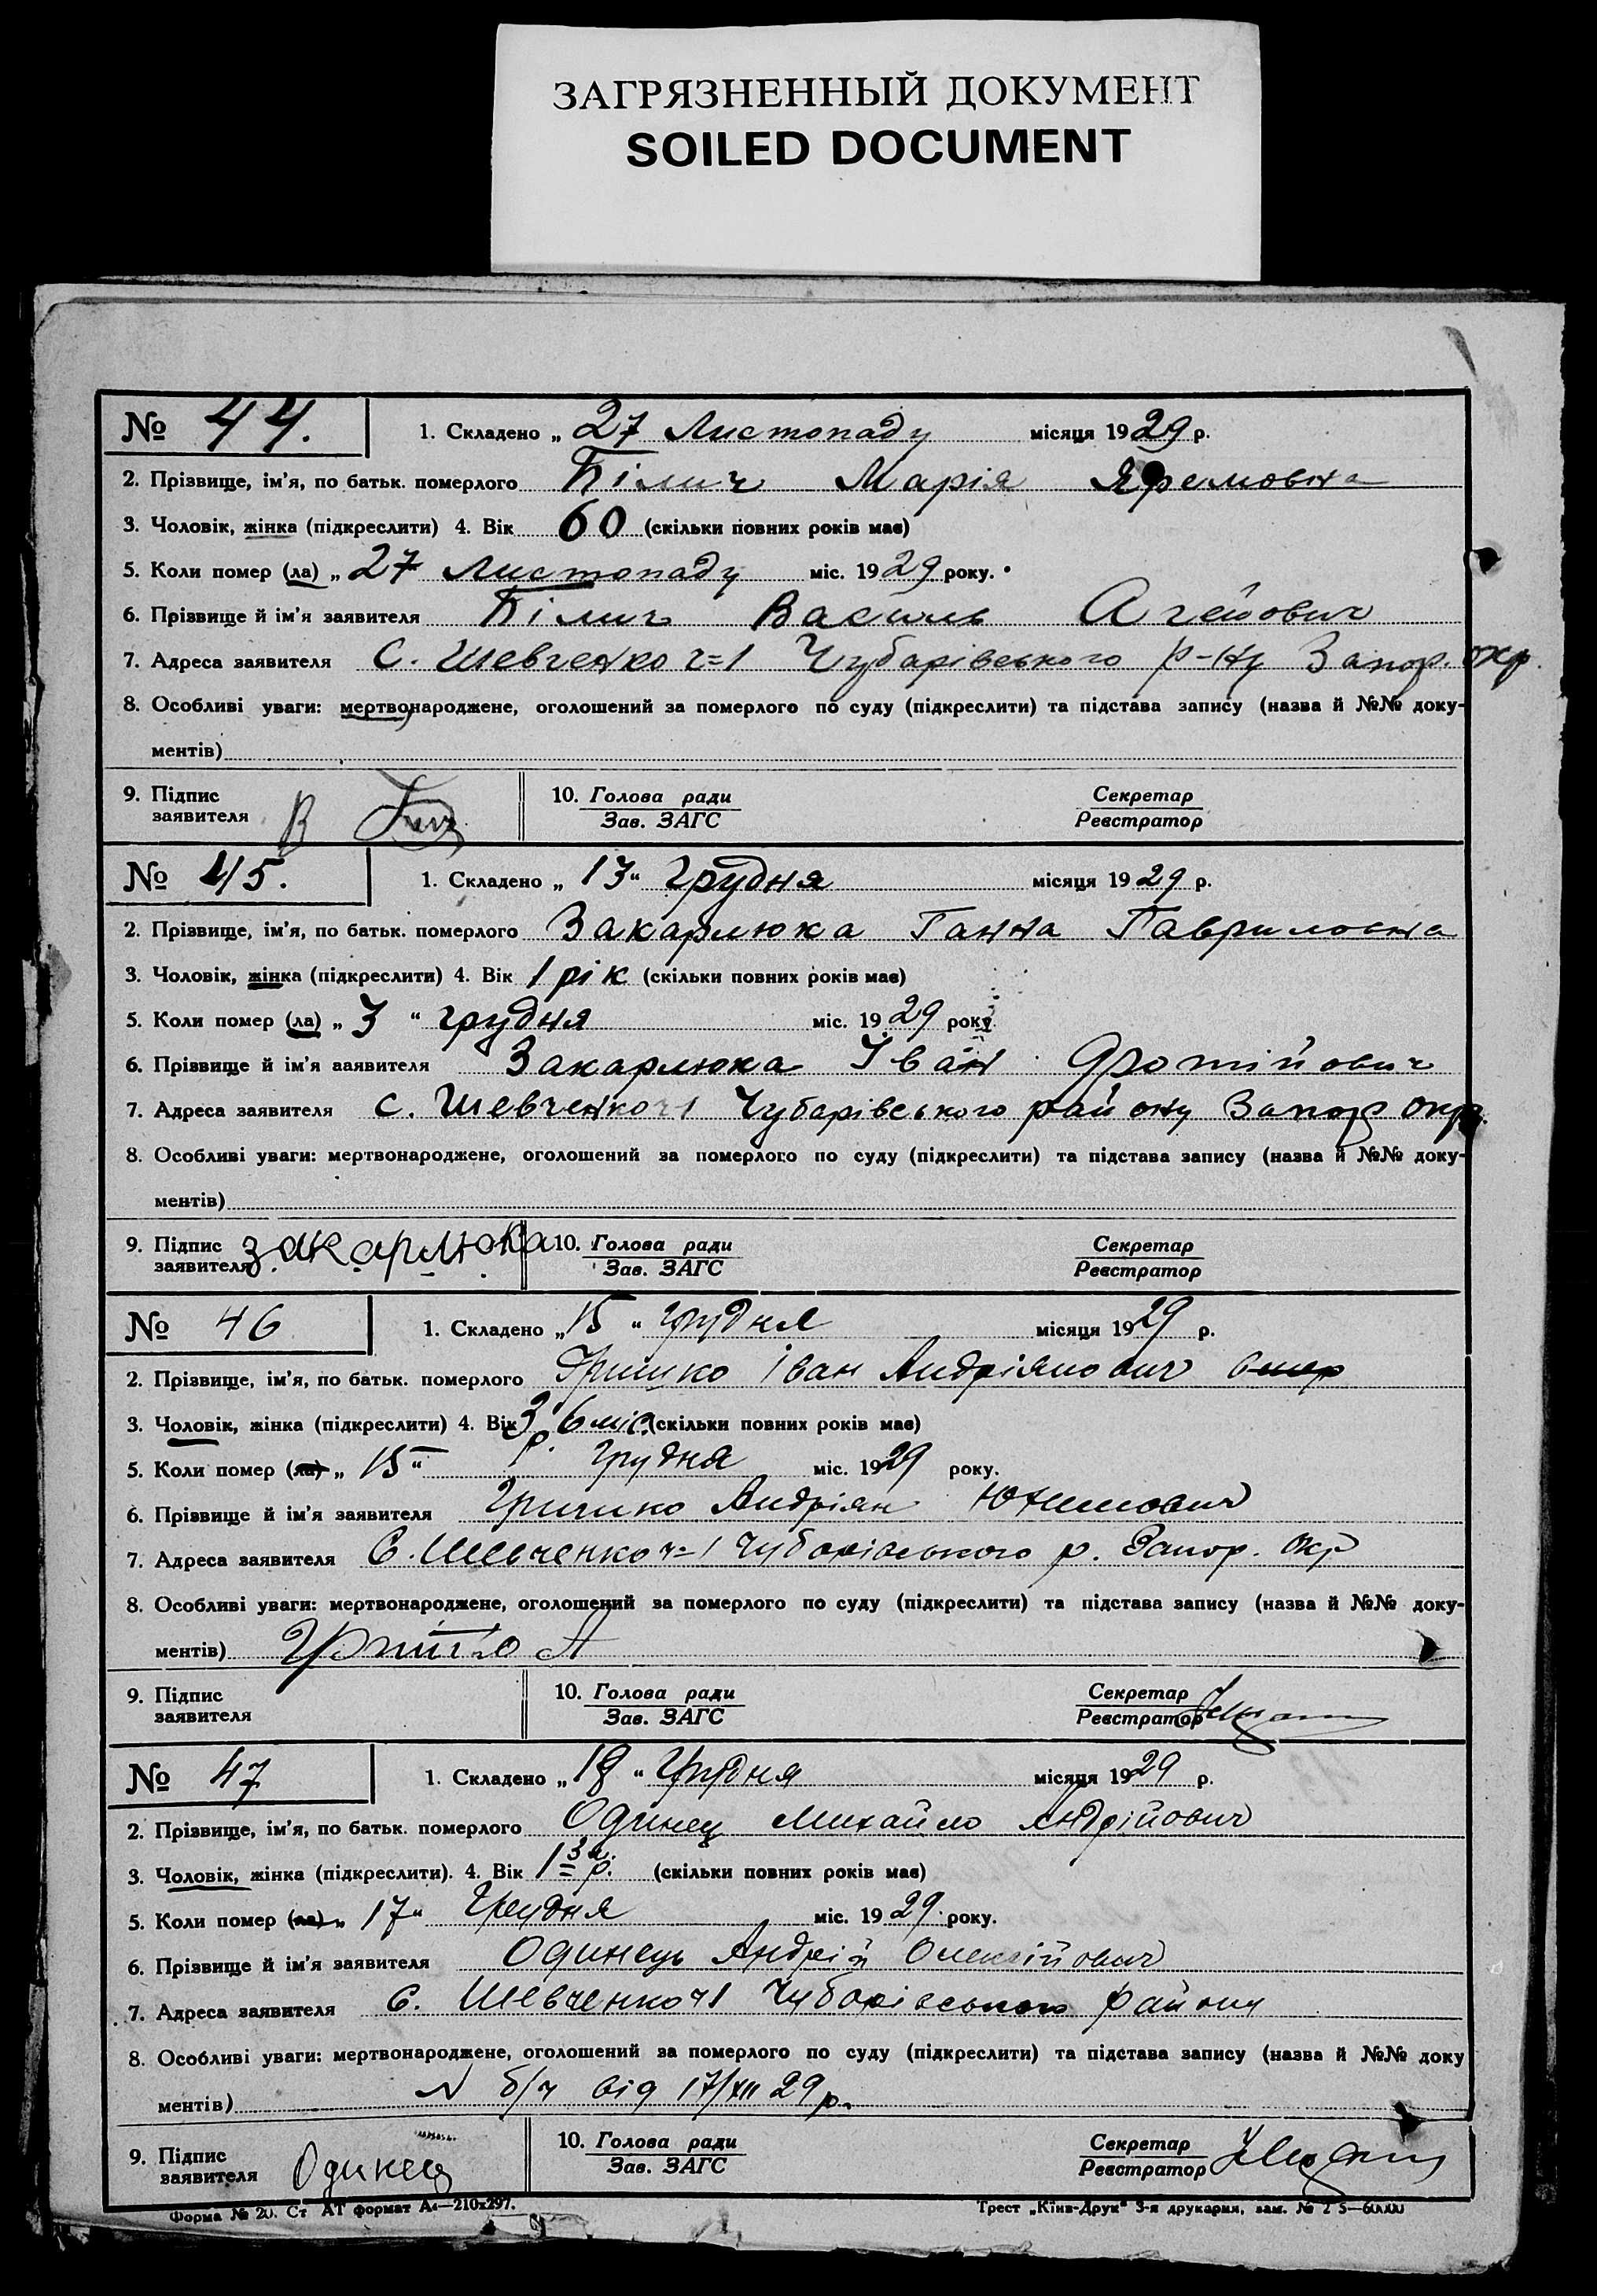 ЗАГРЯЗНЕННЫЙ ДОКУМЕНТ
SOILED DOCUMENT
№ 44. 1. Складено „ 27 Листопаду місяця 1929 р.
2. Прізвище, ім'я, по батьк. померлого Білич Марія Яремовна
3. Чоловік, жінка (підкреслити) 4. Вік 60 (скільки повних років має)
5. Коли помер (ла) „ 27 Листопаду міс. 1929 року.
6. Прізвище й ім'я заявителя Білич Василь
7. Адреса заявителя С. Шевченко ч=1 Чубарівського р-ну Запор. окр.
8. Особливі уваги: мертвонароджене, оголошений за померлого по суду (підкреслити) та підстава запису (назва й №№ доку-
ментів)
9. Підпис заявителя В 10. Голова ради Зав. ЗАГС Секретар Реєстратор
№ 45. 1. Складено „ 13 “ грудня місяця 1929 р.
2. Прізвище, ім'я, по батьк. померлого Закарлюка Ганна Гавриловна
3. Чоловік, жінка (підкреслити) 4. Вік 1 рік (скільки повних років має)
5. Коли помер (ла) „ 3 “ грудня міс. 1929 року.
6. Прізвище й ім'я заявителя Закарлюка Іван
7. Адреса заявителя с. Шевченко ч1 Чубарівського району Запор окр.
8. Особливі уваги: мертвонароджене, оголошений за померлого по суду (підкреслити) та підстава запису (назва й №№ доку-
ментів)
9. Підпис заявителя Закарлюка 10. Голова ради Зав. ЗАГС Секретар Реєстратор
№ 46 1. Складено „ 15 “ грудня місяця 1929 р.
2. Прізвище, ім'я, по батьк. померлого Гришко Іван Андріянович
3. Чоловік, жінка (підкреслити) 4. Вік 3 р. 6 міс. (скільки повних років має)
5. Коли помер (ла) „ 15 “ Грудня міс. 1929 року.
6. Прізвище й ім'я заявителя Гришко Андріян Юхимович
7. Адреса заявителя С. Шевченко ч=1 Чубарівського р. Запор. Окр
8. Особливі уваги: мертвонароджене, оголошений за померлого по суду (підкреслити) та підстава запису (назва й №№ доку-
ментів) Гришко А
9. Підпис заявителя 10. Голова ради Зав. ЗАГС Секретар Реєстратор
№ 47 1. Складено „ 18 “ Грудня місяця 1929 р.
2. Прізвище, ім'я, по батьк. померлого Одинец Михайло Андрійович
3. Чоловік, жінка (підкреслити). 4. Вік (скільки повних років має)
5. Коли помер (ла) „ 17 “ Грудня міс. 1929 року.
6. Прізвище й ім'я заявителя Одинець Андрій Олексійович
7. Адреса заявителя С. Шевченко ч1 Чубарівського району
8. Особливі уваги: мертвонароджене, оголошений за померлого по суду (підкреслити) та підстава запису (назва й №№ доку
ментів) N б/ч від 17/XII 29 р.
9. Підпис заявителя Одинец 10. Голова ради Зав. ЗАГС Секретар Реєстратор
Форма № 20. Ст АТ формат А4—210x297. Трест „Київ-Друк“ 3-я друкарня, зам. №